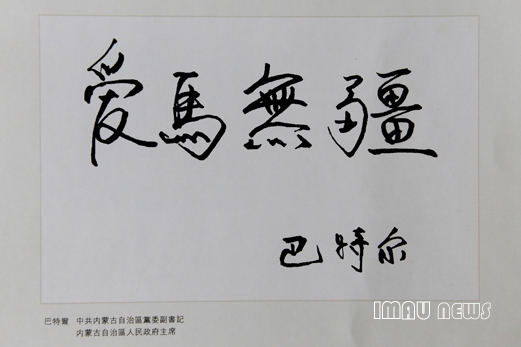 愛馬無疆
巴特尔
IMAU news
巴特爾 中共内蒙古自治區黨委副書記
内蒙古自治區人民政府主席